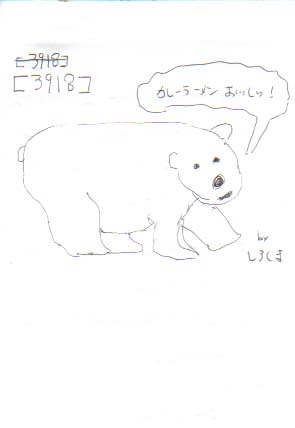 [3918]
[3918]
カレーラーメン おいしい!
by
しろくま